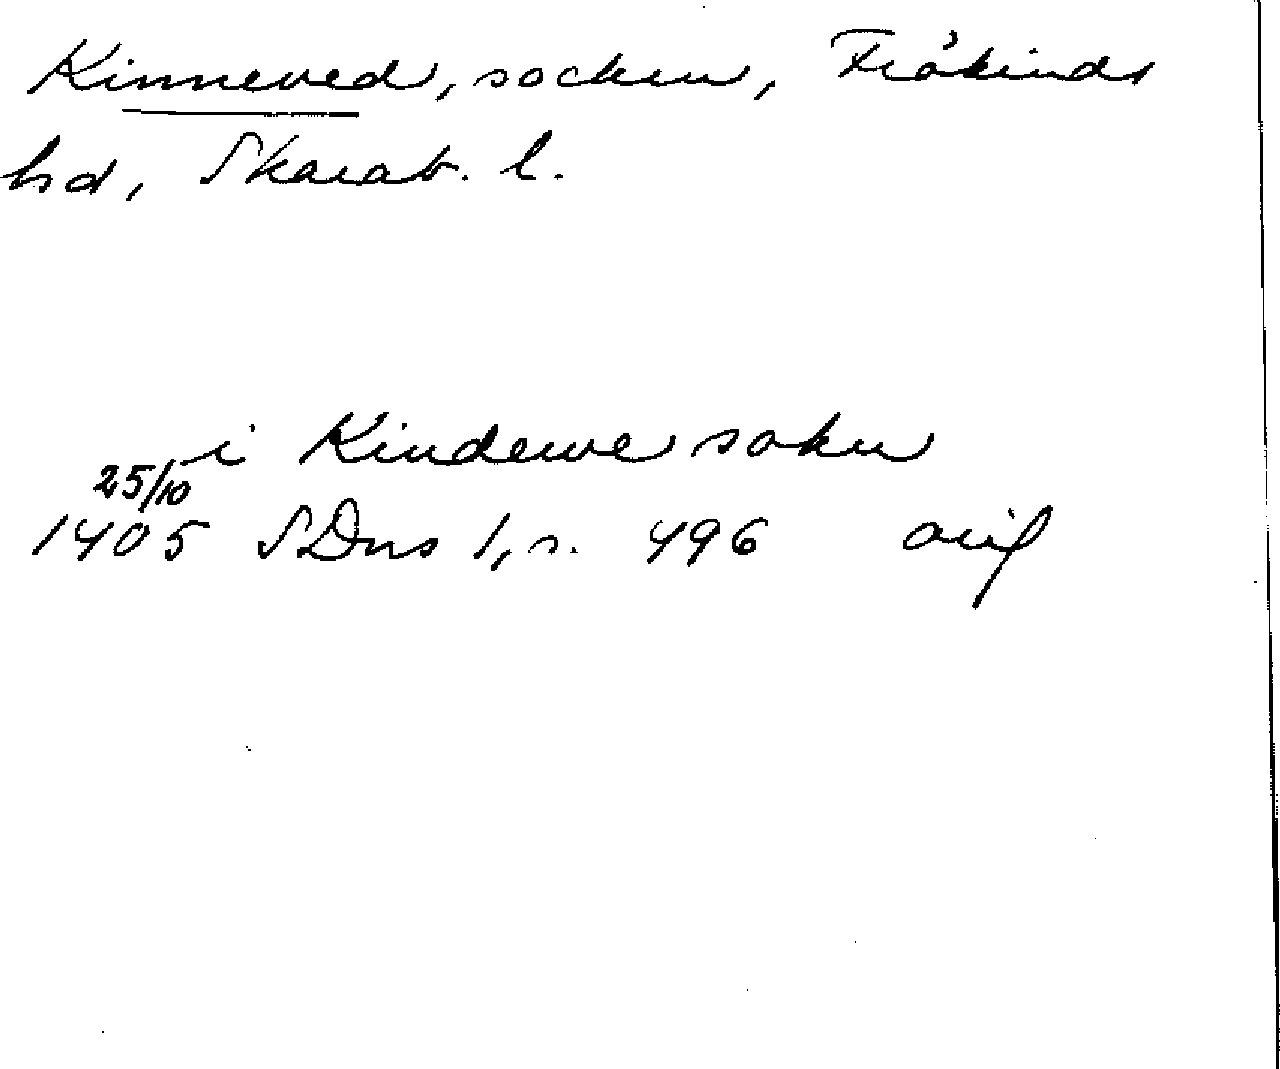 Kinneved, socken, Frökinds
hd, Skarab. l.
i Kindewe sokn
25/10
1405 SDns 1, s. 496 avif